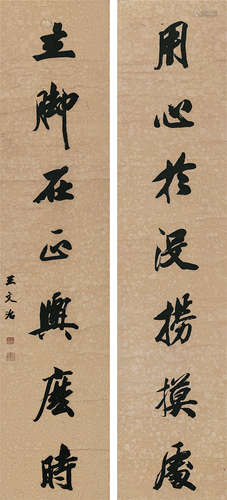 用心於没撈摸處
立脚在正興麽時
王文治